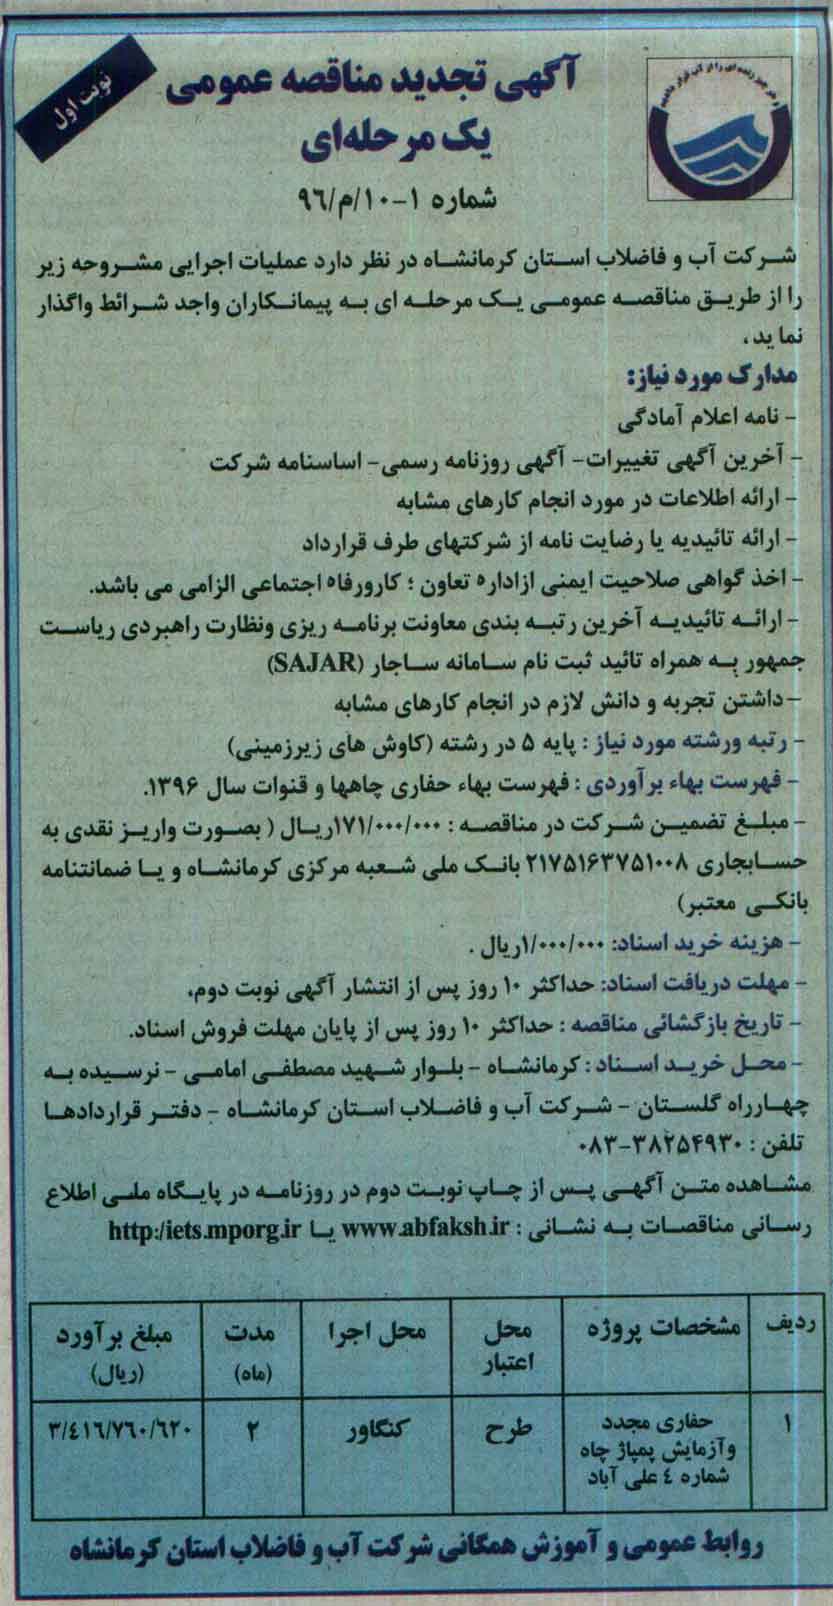 نوبت اول
آگهی تجدید مناقصه عمومی
یک مرحله‌ای
شماره ۱-۱۰/م/۹۶
شرکت آب و فاضلاب استان کرمانشاه در نظر دارد عملیات اجرایی مشروحه زیر
را از طریق مناقصه عمومی یک مرحله ای به پیمانکاران واجد شرائط واگذار
نماید،
مدارک مورد نیاز:
- نامه اعلام آمادگی
- آخرین آگهی تغییرات- آگهی روزنامه رسمی- اساسنامه شرکت
- ارائه اطلاعات در مورد انجام کارهای مشابه
- ارائه تائیدیه یا رضایت نامه از شرکتهای طرف قرارداد
- اخذ گواهی صلاحیت ایمنی ازاداره تعاون ؛ کارورفاه اجتماعی الزامی می باشد.
- ارائه تائیدیه آخرین رتبه بندی معاونت برنامه ریزی ونظارت راهبردی ریاست
جمهور به همراه تائید ثبت نام سامانه ساجار (SAJAR)
-داشتن تجربه و دانش لازم در انجام کارهای مشابه
- رتبه ورشته مورد نیاز : پایه ۵ در رشته (کاوش های زیرزمینی)
- فهرست بهاء برآوردی : فهرست بهاء حفاری چاهها و قنوات سال ۱۳۹۶.
- مبلغ تضمین شرکت در مناقصه : ۱۷۱/۰۰۰/۰۰۰ریال ( بصورت واریز نقدی به
حسابجاری ۲۱۷۵۱۶۳۷۵۱۰۰۸ بانک ملی شعبه مرکزی کرمانشاه و یا ضمانتنامه
بانکی معتبر)
- هزینه خرید اسناد: ۱/۰۰۰/۰۰۰ریال .
- مهلت دریافت اسناد: حداکثر ۱۰ روز پس از انتشار آگهی نوبت دوم،
- تاریخ بازگشائی مناقصه : حداکثر ۱۰ روز پس از پایان مهلت فروش اسناد.
- محل خرید اسناد : کرمانشاه - بلوار شهید مصطفی امامی - نرسیده به
چهارراه گلستان - شرکت آب و فاضلاب استان کرمانشاه - دفتر قراردادها
تلفن : ۳۸۲۵۴۹۳۰-۰۸۳
مشاهده متن آگهی پس از چاپ نوبت دوم در روزنامه در پایگاه ملی اطلاع
رسانی مناقصات به نشانی : www.abfaksh.ir یا http:/iets.mporg.ir
ردیف مشخصات پروژه محل اعتبار محل اجرا مدت (ماه) مبلغ برآورد (ریال)
۱ حفاری مجدد وآزمایش پمپاژ چاه شماره ٤ علی آباد طرح کنگاور ۲ ۳/٤۱٦/۷٦۰/٦۲۰
روابط عمومی و آموزش همگانی شرکت آب و فاضلاب استان کرمانشاه